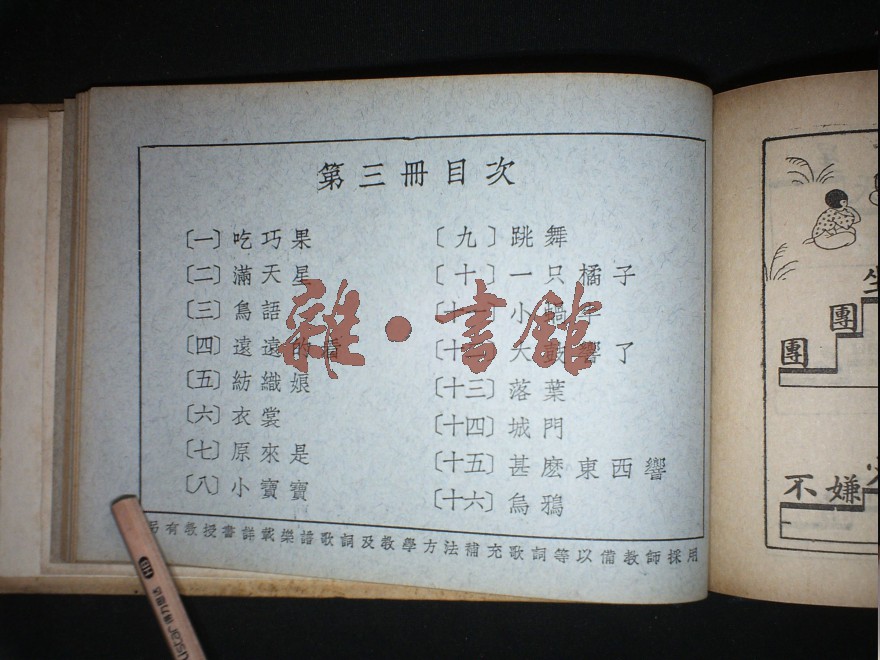 第三冊目次
〔一〕吃巧果
〔二〕滿天星
〔三〕鳥語
〔四〕遠遠的看
〔五〕紡織娘
〔六〕衣裳
〔七〕原來是
〔八〕小寶寶
〔九〕跳舞
〔十〕一只橘子
〔十一〕小
〔十二〕大 響了
〔十三〕落葉
〔十四〕城門
〔十五〕甚麽東西響
〔十六〕烏鴉
另有教授書詳載樂譜歌詞及教學方法補充歌詞等以備教師採用
雜·書館
團
團
不嫌
HB